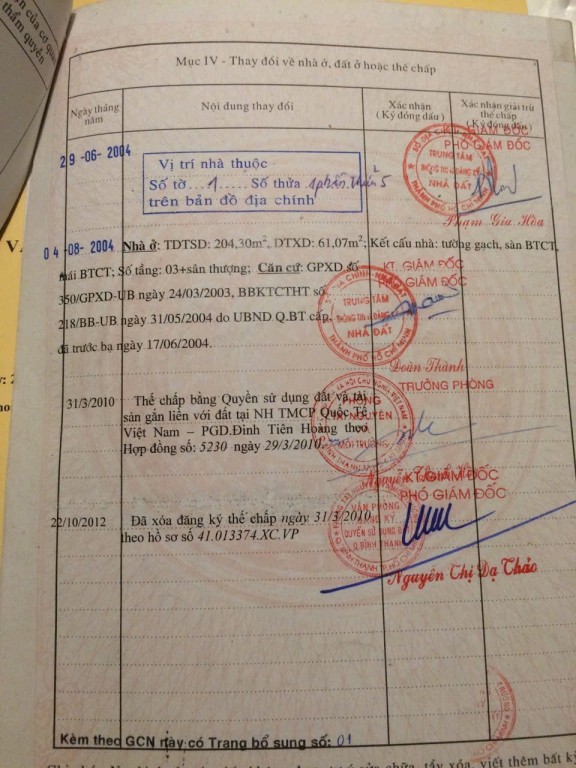 ơn của cơ qua
thẩm quyền
Mục IV - Thay đổi về nhà ở, đất ở hoặc thế chấp
Ngày tháng năm
Nội dung thay đổi
Xác nhận
( Ký đóng dấu)
Xác nhận giải trừ
thế chấp
( Ký đóng dấu)
29-06-2004
Vị trí nhà thuộc
Số tờ ...1..... Số thửa 1phần thửa 5
trên bản đồ địa chính
KT. GIÁM ĐỐC
PHÓ GIÁM ĐỐC
TRUNG TÂM
THÔNG TIN & ĐĂNG KÝ
NHÀ ĐẤT
THÀNH PHỐ HỒ CHÍ MINH
Phạm Gia Hòa
04-08-2004
Nhà ở: TDTSD: 204,30m², DTXD: 61,07m²; Kết cấu nhà: tường gạch, sàn BTCT,
mái BTCT; Số tầng: 03+sân thượng; Căn cứ: GPXD số
350/GPXD-UB ngày 24/03/2003, BBKTCTHT số
218/BB-UB ngày 31/05/2004 do UBND Q.BT cấp,
đã trước bạ ngày 17/06/2004.
KT. GIÁM ĐỐC
PHÓ GIÁM ĐỐC
TRUNG TÂM
THÔNG TIN & ĐĂNG KÝ
NHÀ ĐẤT
THÀNH PHỐ HỒ CHÍ MINH
Đoàn Thành
31/3/2010
Thế chấp bằng Quyền sử dụng đất và tài
sản gắn liền với đất tại NH TMCP Quốc Tế
Việt Nam – PGD.Đinh Tiên Hoàng theo
Hợp đồng số: 5230 ngày 29/3/2010.
TRƯỞNG PHÒNG
PHÒNG
TÀI NGUYÊN
MÔI TRƯỜNG
22/10/2012
Đã xóa đăng ký thế chấp ngày 31/3/2010
theo hồ sơ số 41.013374.XC.VP
KT.GIÁM ĐỐC
PHÓ GIÁM ĐỐC
VĂN PHÒNG
ĐĂNG KÝ
QUYỀN SỬ DỤNG ĐẤT
Q.BÌNH THẠNH
Nguyễn Thị Dạ Thảo
Kèm theo GCN này có Trang bổ sung số: 01